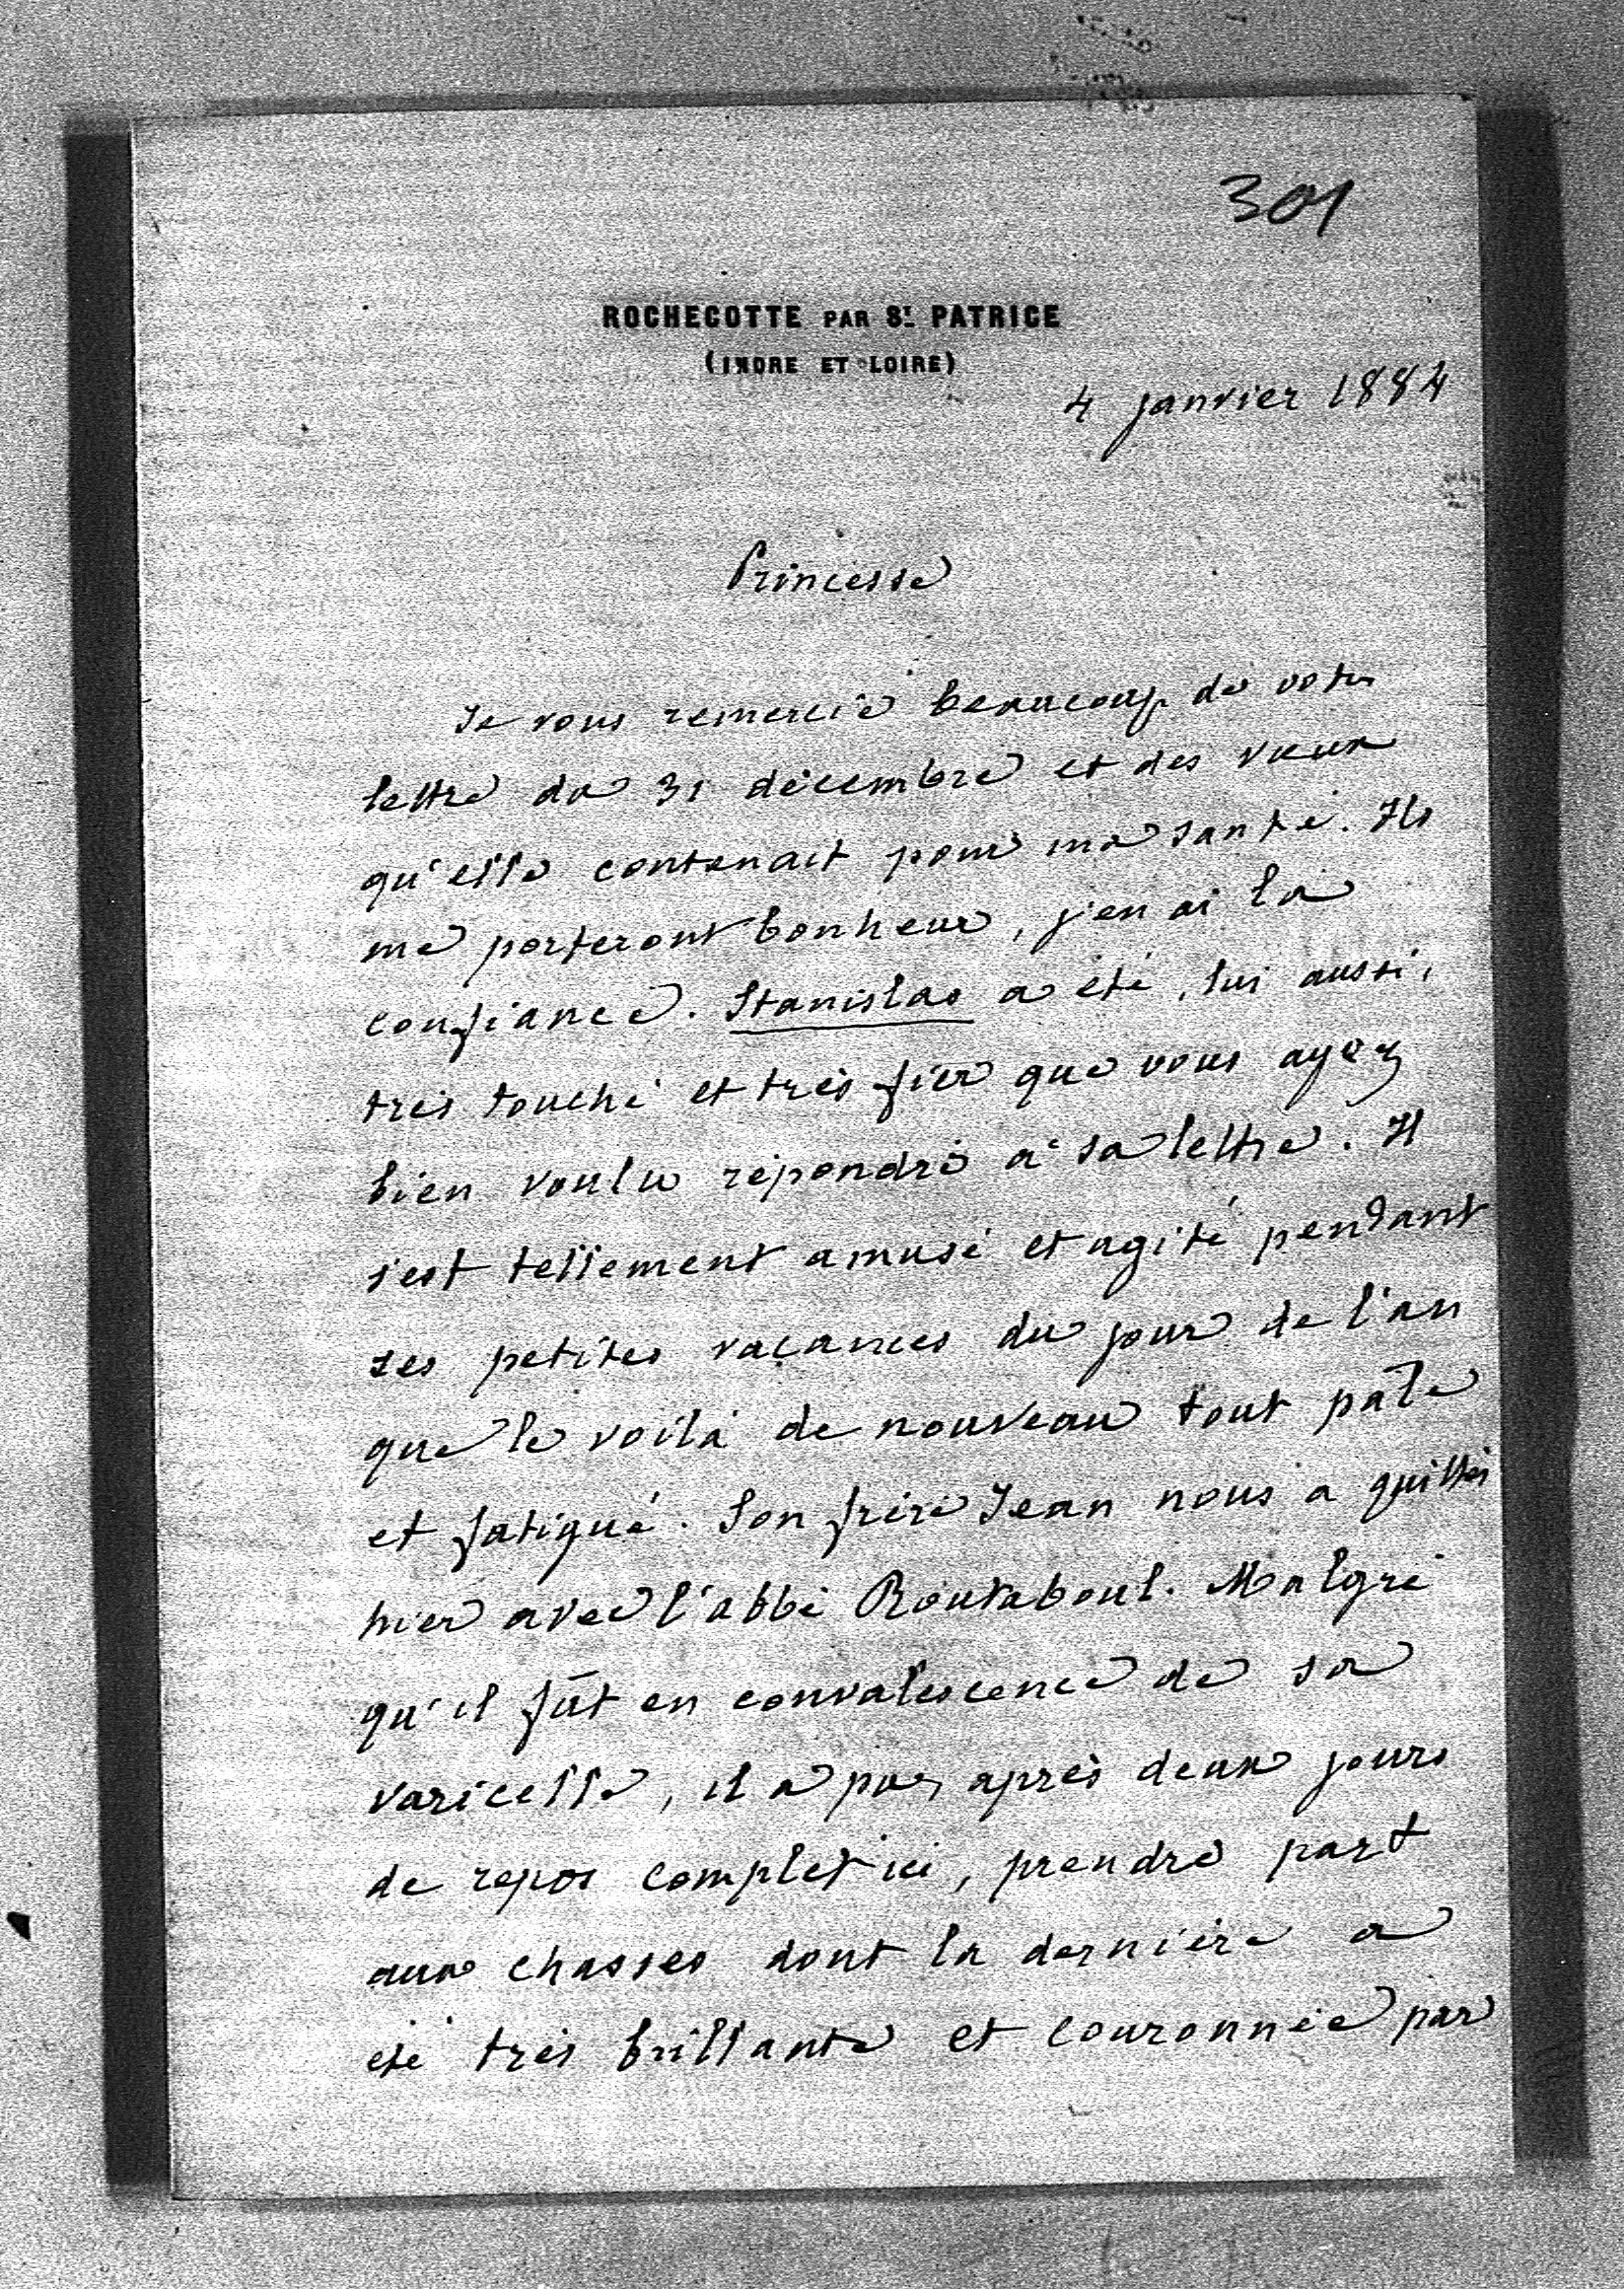 301
ROCHECOTTE PAR ST PATRICE
(INDRE ET LOIRE)
4 janvier 1884
Princesse
Je vous remercie beaucoup de votre
lettre du 31 décembre et des vœux
qu'elle contenait pour ma santé. Ils
me porteront bonheur, j'en ai la
confiance. Stanislas a été, lui aussi,
très touché et très fier que vous ayez
bien voulu répondre à sa lettre. Il
s'est tellement amusé et agité pendant
ses petites vacances du jour de l'an
que le voilà de nouveau tout pâle
et fatigué. Son frère Jean nous a quittés
hier avec l'abbé Routaboul. Malgré
qu'il fût en convalescence de sa
varicelle, il a pu, après deux jours
de repos complet ici, prendre part
aux chasses dont la dernière a
été très brillante et couronnée par